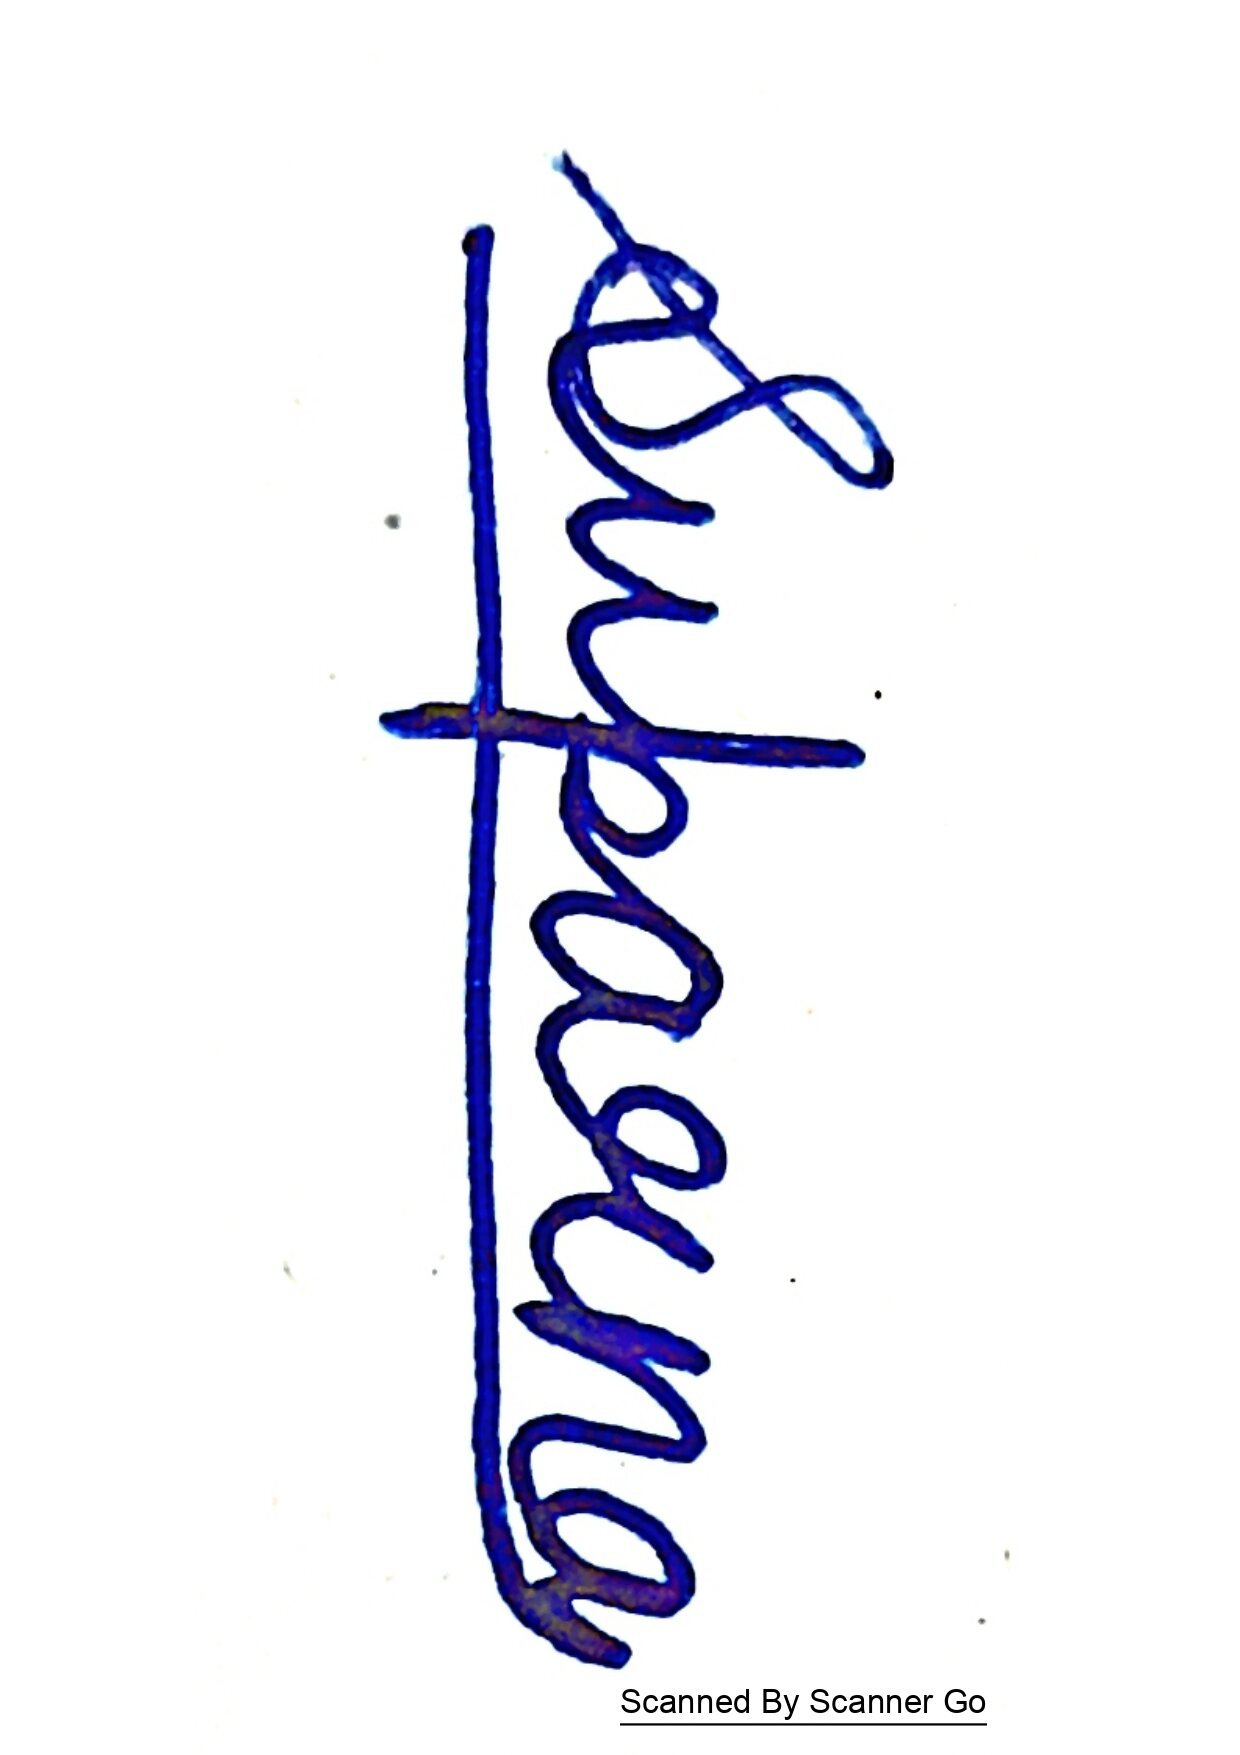 Suparna
Scanned By Scanner Go